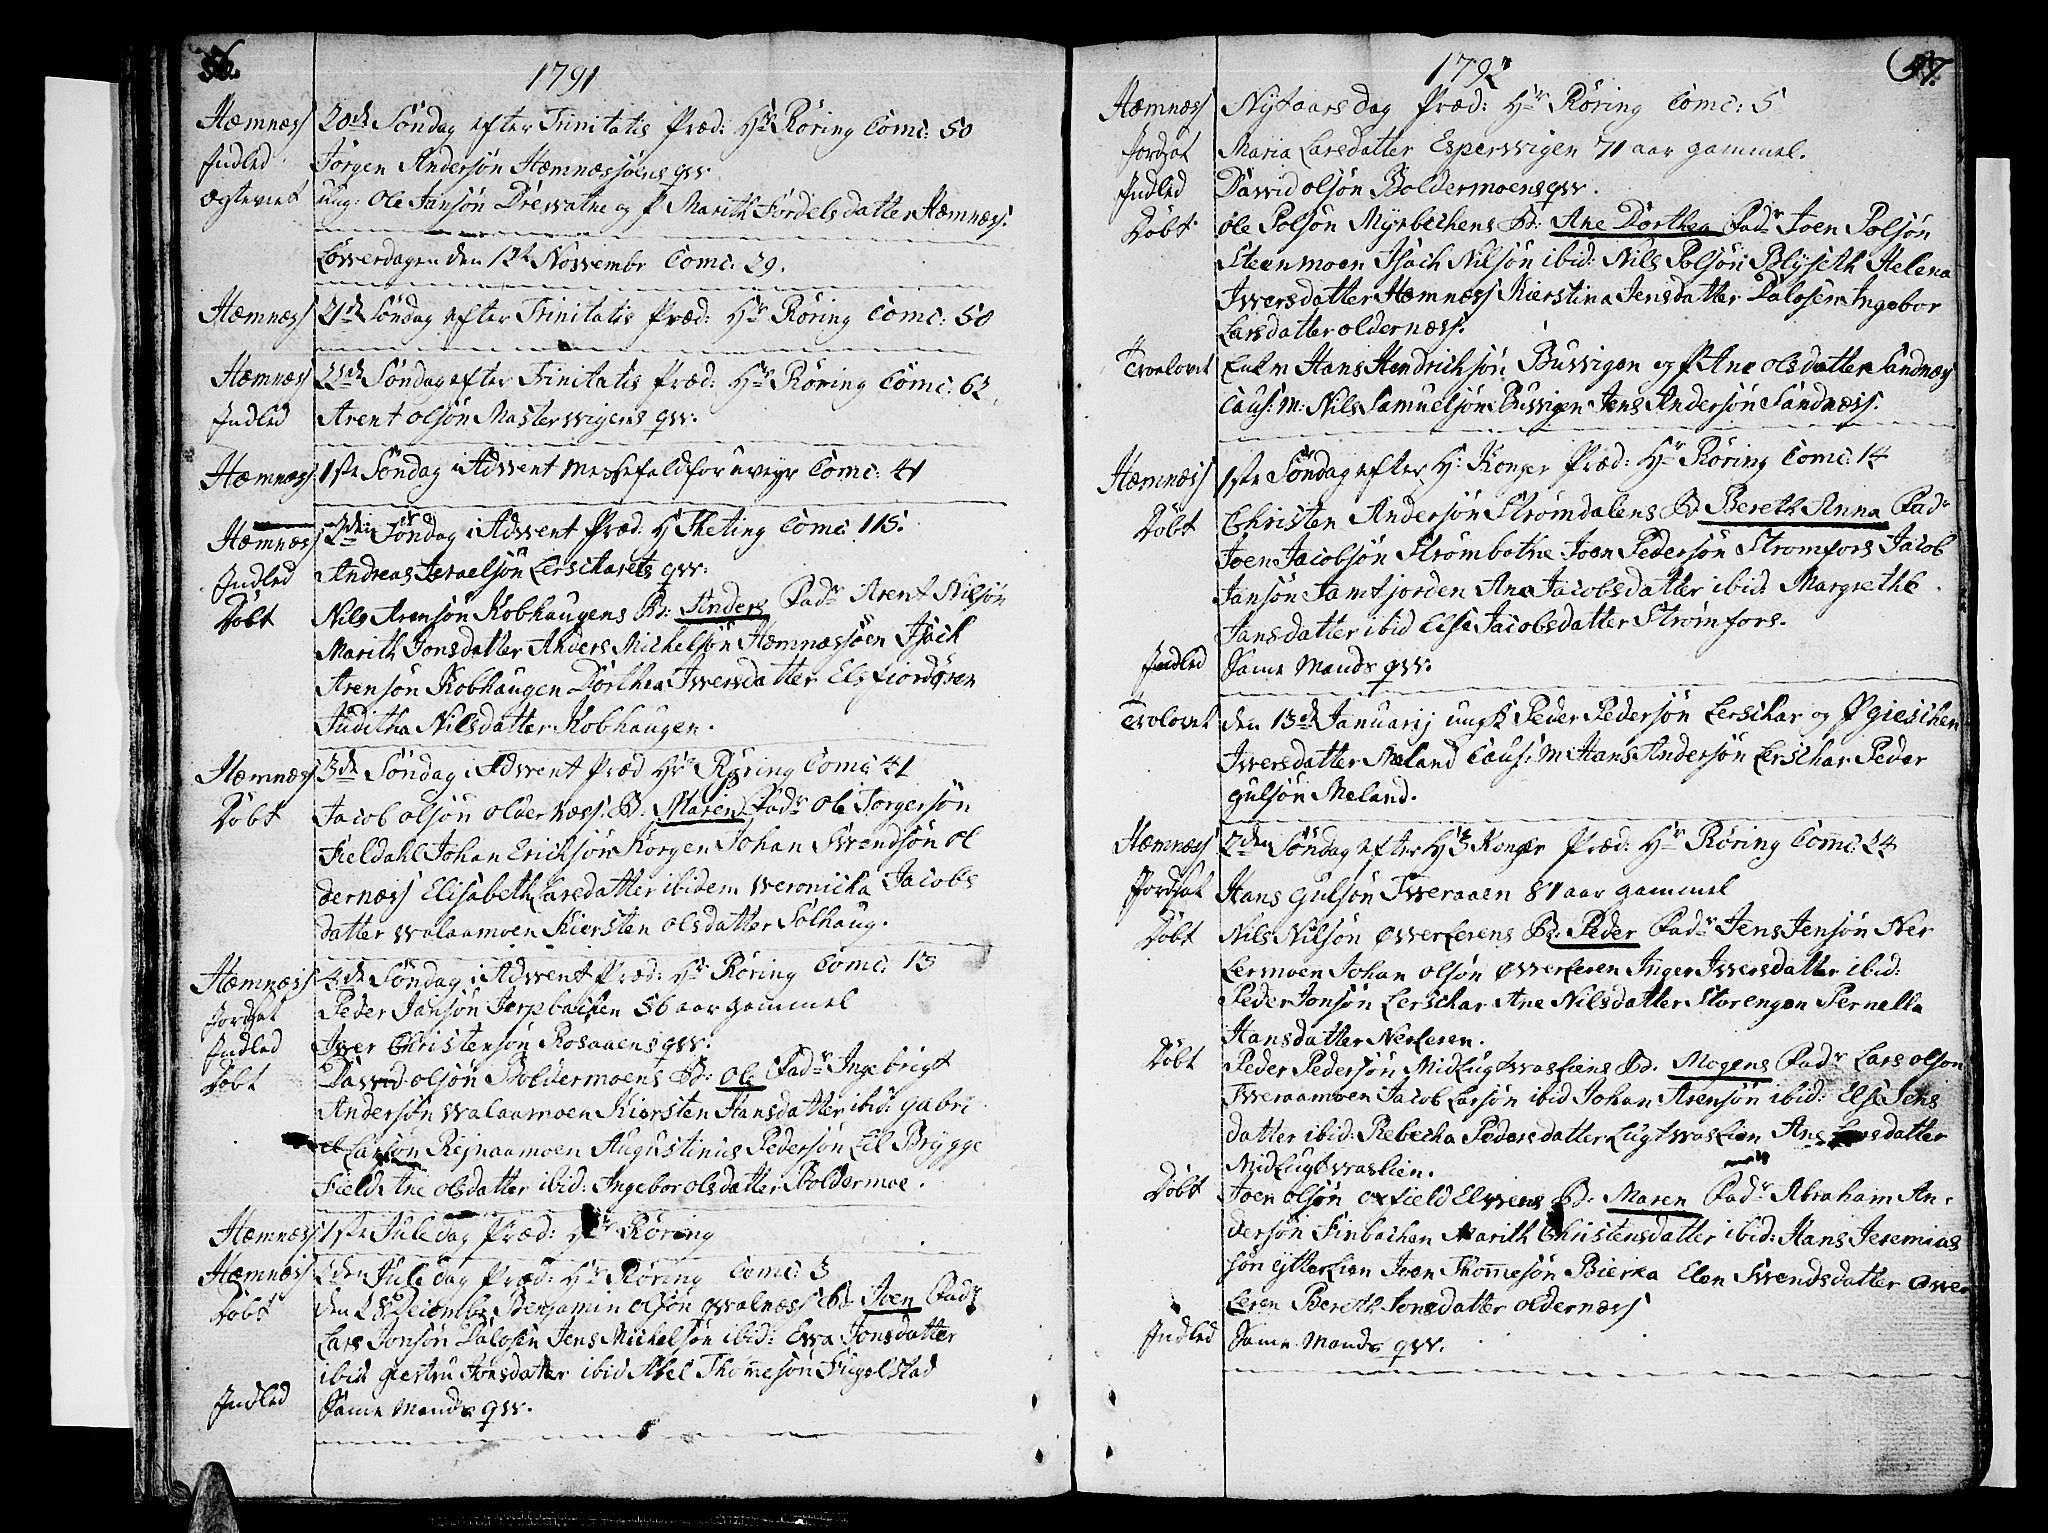 56.
1791
Hæmness 20de Söndag efter Trinitatis Præd: Hr Röring Comc: 50
Indled Jörgen Andersön Hæmnessjöens qvv.
Ægteviet ung: Ole Jansön Dressvatne og P Marith Fördelsdatter Hæmness.
Lösverdagen den 12te Novembr Comc: 29.
Hæmness 21de Söndag efter Trinitatis Præd: Hr Röring Comc: 50
Hæmness 22de Söndag efter Trinitatis Præd: Hr Röring Comc: 62
Indled Arent Olsön Mastervigens qvv.
Hæmness 1ste Söndag i Advent Messefald for uveyr Comc: 41
Hæmness 2den Söndag i Advent Præd: H Theting Comc: 115.
Indled Andreas Israelsön Lerscharets qvv:
Döbt Nils Arensön Kobhaugens B: Anders Fadr Arent Nilsön
Marith Jonsdatter Anders Michelsön Hæmnessjöen Isach
Arensön Kobhaugen Dorthea Iversdatter Elsfiordören
Juditha Nilsdatter Kobhaugen.
Hæmness 3de Söndag i Advent Præd Hr Röring Comc 41
Döbt Jacob Olsön Oldernæss. B. Maren Fadr Ole Torgersön
Fieldahl Johan Ericksön Korgen Johan Svendsön Ol
dernæss Elisabeth Larsdatter ibidem Weronicka Jacobs
datter Walaamoen Kiersten Olsdatter Solhaug.
Hæmness 4de Söndag i Advent Præd: Hr Röring Comc: 13
Jordsat Peder Jansön Jerpbachen 56 aar gammel
Indled Iver Christensön Rosaaens qvv:
Döbt David Olsön Boldermoens B: Ole Fadr Ingebrigt
Andersön Walaamoen Kiersten Hansdatter ibid: Gabri
el Larsön Rejnaamoen Augustinus Pedersön Lil Brygge
Field Ane Olsdatter ibid: Ingebor Olsdatter Boldermoe.
Hæmness 1ste Juledag Præd: Hr Röring
Hæmness 2den Juledag Præd: Hr Röring Comc: 3
Döbt den 28 Decembr Benjamin Olsön Qvalnæss B: Joen Fadr
Lars Jonsön Dalosen Jens Michelsön ibid: Ewa Jonsdatter
ibid Giertru Jonsdatter ibid Abel Thomesön Fugelstad
Indled Same Mands qvv.
57.
1792
Hæmness Nytaarsdag Præd: Hr Röring Comc: 5
Jordsat Maria Larsdatter Espervigen 71 aar gammel.
Indled David Olsön Boldermoens qvv.
Döbt Ole Polsön Myrbechens B: Ane Dorthea Fadr Joen Polsön
Steenmoen Isach Nilsön ibid: Nils Polsön Blyseth Helena
Iversdatter Hæmness Kierstina Jensdatter Dalosen Ingebor
Larsdatter Oldernæss.
Troelovet Enkm Hans Hendrichsön Busvigen og P Ane Olsdatter Sandnæs
Caus: M: Nils Samuelsön Busvigen Jens Andersön Sandnæss.
Hæmness 1ste Söndag efter H: Konger Præd: Hr Röring Comc: 14
Döbt Christen Andersön Strömdalens B: Bereth Anna Fadr
Joen Jacobsön Strömbotne Joen Pedersön Strömfors Jacob
Jansön Jamtjorden Ane Jacobsdatter ibid: Margrethe
Jansdatter ibid Else Jacobsdatter Strömfors.
Indled Same Mands qvv.
Trolovet den 13de Januarij ungk Peder Pedersön Lerschar og P Gieschen
Iversdatter Meland Caus: M Hans Andersön Lerschar Peder
Gulsön Meland.
Hæmness 2den Söndag efter H 3 Konger Præd: Hr Röring Comc: 24
Jordsat Hans Gulsön Tveraaen 81 aar gammel
Döbt Nils Nilsön Øverlerens B: Peder Fadr Jens Jensön Ner
Lermoen Johan Olsön Øverleren Inger Iversdatter ibid:
Peder Jonsön Lerschar Ane Nilsdatter Storengen Pernella
Hansdatter Nerleren.
Döbt Peder Pedersön Midlugtvasliens B. Mogens Fadr Lars Olsön
Tveraamoen Jacob Larsön ibid Johan Arensön ibid: Else Jens
datter ibid: Rebecha Pedersdatter Lugtvaslien Ane Larsdatter
Midlugtvaslien.
Döbt Joen Olsön Oxfieldelvens B. Maren Fadr Abraham An-
dersön Finbachen Marith Christensdatter ibid: Hans Jeremias
sön Ytterlien Joen Thomesön Bierka Elen Svendsdatter Øver
leren Bereth Jonsdatter Oldernæss
Indled Same Mands qvv.